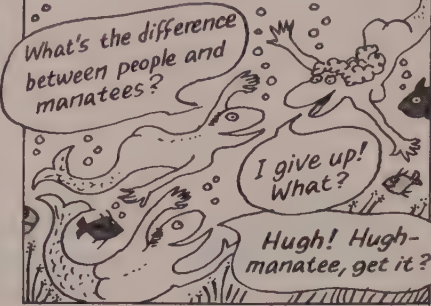 What's the difference
between people and
manatees?
I give up!
What?
Hugh! Hugh-
manatee, get it?